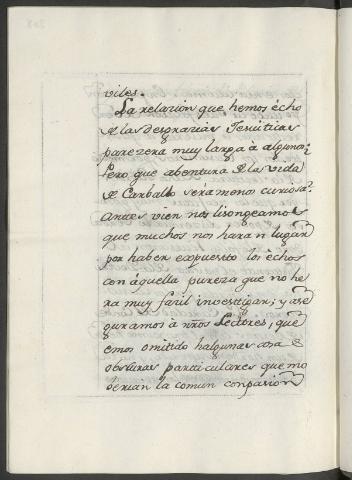 viles.
La relacion que hemos écho
de las desgracias Jesuiticas
parezera muy larga à algunos;
Pero que abentura de las vida
de Carballo sera menos curiosa?
Antes vien nos lisongeamos
que muchos nos haran lugar
por haber expuesto los échos
con áquella pureza que no he
ra muy facil investigar; y ase
guramos à nros Lectores, que
emos omitido halgunas cosas
obscuras particulares que mo
berian la comun conpasion